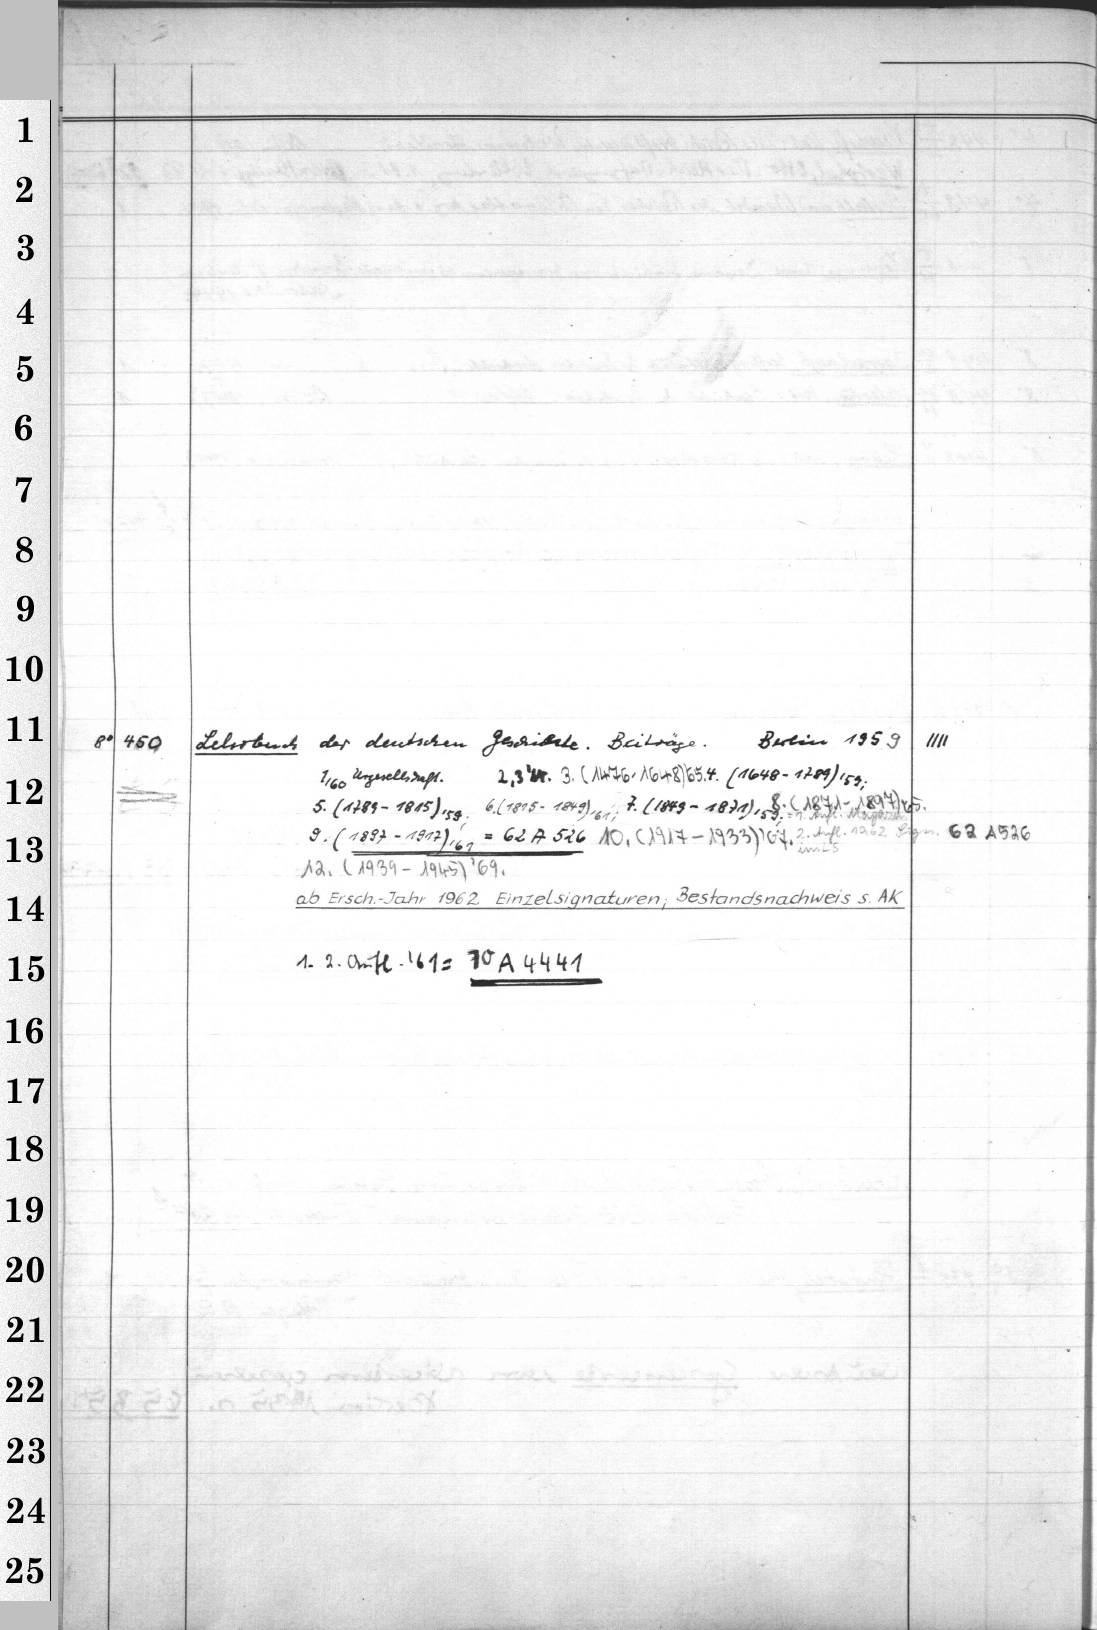 1
2
3
4
5
6
7
8
9
10
11
8° 450 Lehrbuch der deutschen Geschichte. Beiträge. Berlin 1959 ////
12
1/60 Urgesellschaft. 2,3 3. (1476-1648)'65. 4. (1648-1789)'59;
5. (1789-1815)'59. 6. (1815-1849)'61; 7. (1849-1871)'59; 8. (1871-1897)'65.
= 1. Aufl. Magazin
13
9. (1897-1917)'61 = 62 A 526 10. (1917-1933)'67. 2. Aufl. 1962 Sign. 62 A526
im LS
12. (1939-1945)'69.
14
ab Ersch.-Jahr 1962 Einzelsignaturen; Bestandsnachweis s. AK
15
1. 2. Aufl. '61 = 70 A 4441
16
17
18
19
20
21
22
23
24
25